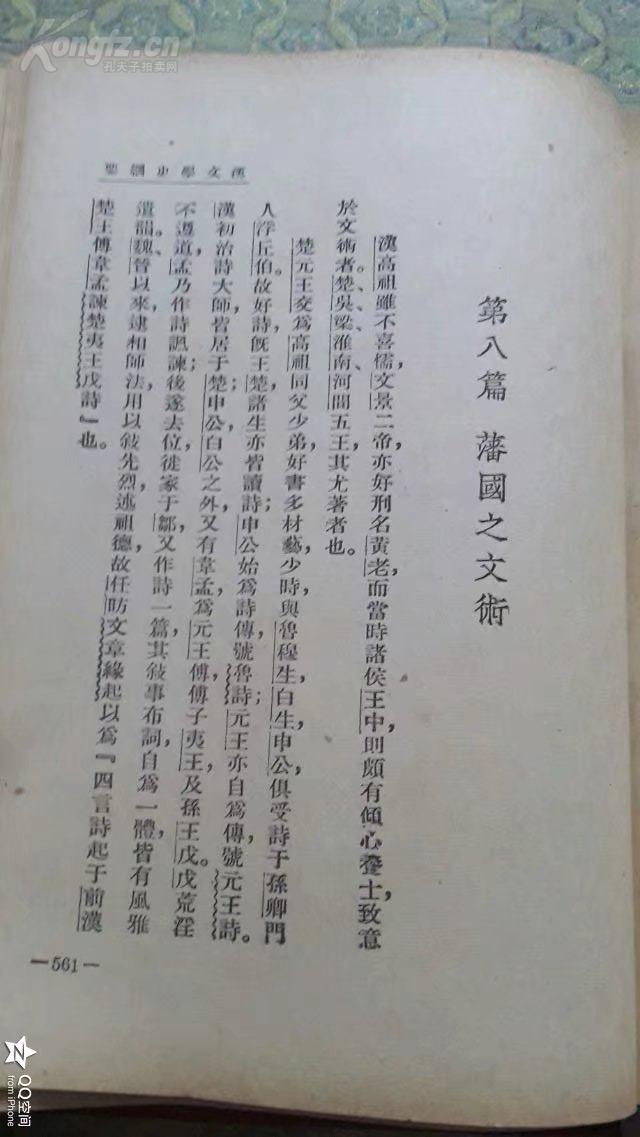 Kongfz.cn
孔夫子拍卖网
漢文學史綱要
第八篇 藩國之文術
漢高祖雖不喜儒，文景二帝，亦好刑名黃老，而當時諸侯王中，則頗有傾心養士，致意
於文術者。楚、吳、梁、淮南、河間五王，其尤著者也。
楚元王交爲高祖同父少弟，好書多材藝，少時，與魯穆生、白生、申公，俱受詩于孫卿門
人浮丘伯。故好詩，旣王楚，諸生亦皆讀詩；申公始爲詩傳，號魯詩；元王亦自爲傳，號元王詩。
漢初治詩大師，皆居于楚；申公白公之外，又有韋孟，爲元王傅，傅子夷王，及孫王戊。戊荒淫
不遵道，孟乃作詩諷諫；後遂去位，徙家于鄒，又作詩一篇，其敍事布詞，自爲一體，皆有風雅
遺韻。魏晉以來，逮相師法，用以敍先烈，述祖德，故任昉文章緣起以爲『四言詩起于前漢
楚王傅韋孟諫楚夷王戊詩』也。
—561—
QQ空间
from iPhone